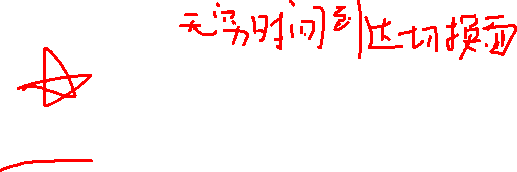 无穷时间到达切换面